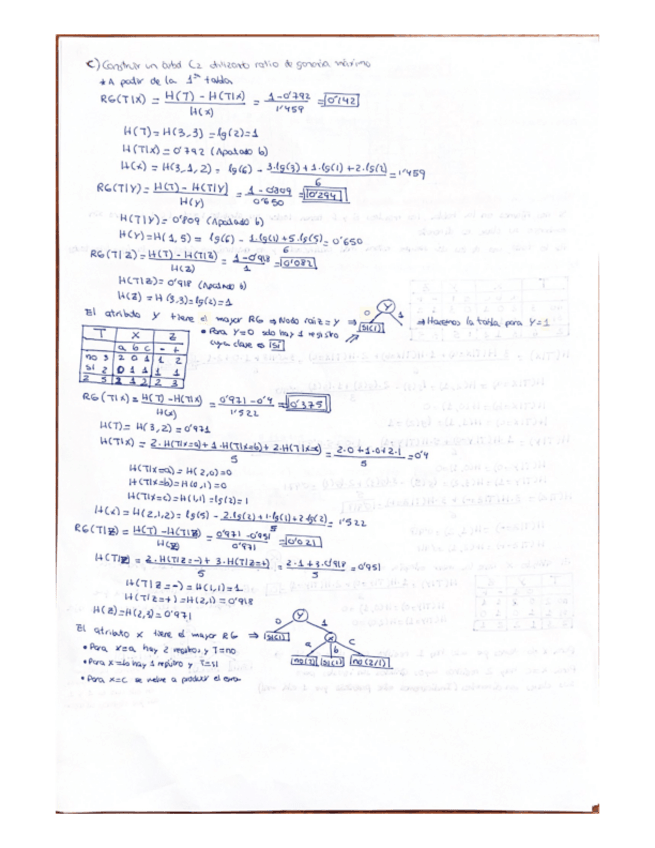 c) Construir un árbol C2 utilizando ratio de ganancia máximo
* A partir de la 1ª tabla
RG(T|X) = H(T) - H(T|X) / H(X) = 1 - 0'792 / 1'459 = 0'142
H(T) = H(3,3) = lg(2) = 1
H(T|X) = 0'792 (Apartado b)
H(X) = H(3,1,2) = lg(6) - 3·lg(3) + 1·lg(1) + 2·lg(2) / 6 = 1'459
RG(T|Y) = H(T) - H(T|Y) / H(Y) = 1 - 0'809 / 0'650 = 0'294
H(T|Y) = 0'809 (Apartado b)
H(Y) = H(1,5) = lg(6) - 1·lg(1) + 5·lg(5) / 6 = 0'650
RG(T|Z) = H(T) - H(T|Z) / H(Z) = 1 - 0'918 / 1 = 0'082
H(T|Z) = 0'918 (Apartado b)
H(Z) = H(3,3) = lg(2) = 1
El atributo Y tiene el mayor RG ⇒ Nodo raíz = Y ⇒ Y 0 1 SI(1) ⇒ Hacemos la tabla para Y=1
• Para Y=0 solo hay 1 registro
cuya clase es SI
T X Z
a b c - +
no 3 2 0 1 1 2
sí 2 0 1 1 1 1
2 5 2 1 2 2 3
RG(T|X) = H(T) - H(T|X) / H(X) = 0'971 - 0'4 / 1'522 = 0'375
H(T) = H(3,2) = 0'971
H(T|X) = 2·H(T|X=a) + 1·H(T|X=b) + 2·H(T|X=c) / 5 = 2·0 + 1·0 + 2·1 / 5 = 0'4
H(T|X=a) = H(2,0) = 0
H(T|X=b) = H(0,1) = 0
H(T|X=c) = H(1,1) = lg(2) = 1
H(X) = H(2,1,2) = lg(5) - 2·lg(2) + 1·lg(1) + 2·lg(2) / 5 = 1'522
RG(T|Z) = H(T) - H(T|Z) / H(Z) = 0'971 - 0'951 / 0'971 = 0'021
H(T|Z) = 2·H(T|Z=-) + 3·H(T|Z=+) / 5 = 2·1 + 3·0'918 / 5 = 0'951
H(T|Z=-) = H(1,1) = 1
H(T|Z=+) = H(2,1) = 0'918
H(Z) = H(2,3) = 0'971
El atributo X tiene el mayor RG ⇒ Y 0 1 SI(1) X a b c no(2) SI(1) no(2/1)
• Para X=a hay 2 registros y T=no
• Para X=b hay 1 registro y T=SI
• Para X=c se vuelve a producir el error